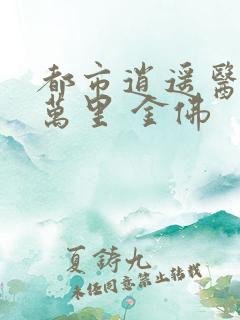 都市逍遥醫
萬里 金佛
夏鑄九
未经同意禁止转载